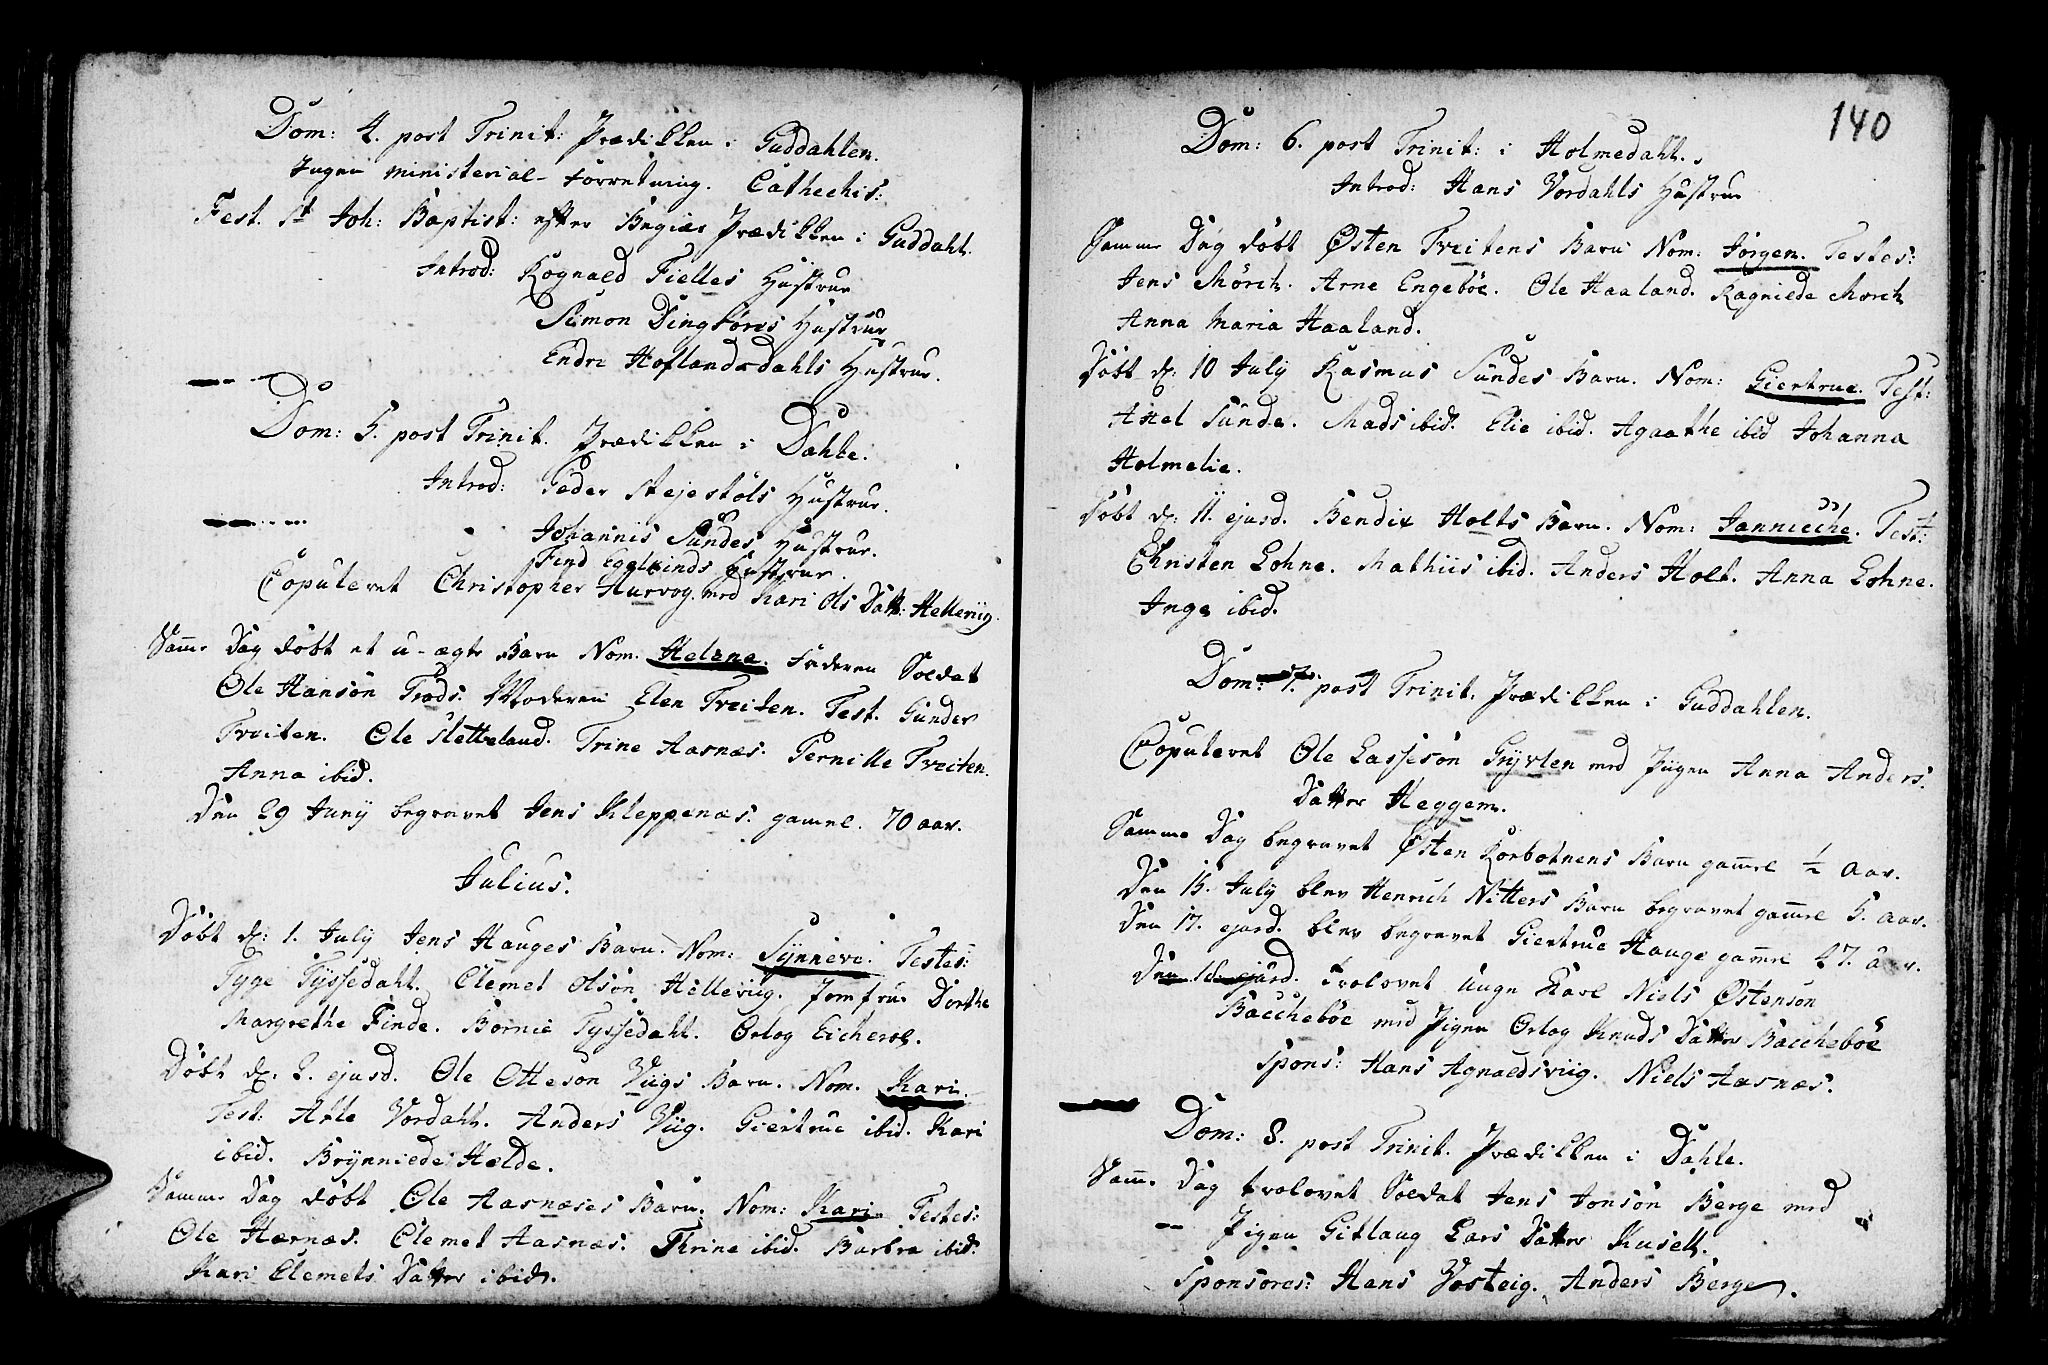 Dom: 4. post Trinit: Prædikken i Guddahlen.
Ingen ministerial-Forretning. Cathechis:
Fest. St Joh: Baptist: efter Begiær Prædikken i Guddahl.
Introd: Rognald Fielles Hustrue
Simon Dingføris Hustrue
Endre Hoflandsdahls Hustrue.
Dom: 5. post Trinit. Prædikken i Dahle.
Introd: Peder Stejestøls Hustrue.
Johannis Sundes Hustrue.
Find Hustrue.
Copuleret Christopher Aurvog med Kari Ols Datt: Helleviig.
Samme Dag døbt et u-ægte Barn Nom. Helene. Faderen Soldat
Ole Hansøn Trods. Moderen Elen Tveiten. Test. Gunder
Tveiten. Ole Sletteland. Trine Aasnæs. Pernille Tveiten.
Anna ibid.
Den 29 Junij begravet Jens Kleppenæs. gamel. 70 aar.
Julius.
Døbt d: 1. July Jens Hauges Barn. Nom: Synneve. Testes:
Tyge Tyssedahl. Clemet Olsøn Helleviig. Jomfrue Dorthe
Margrethe Finde. Bornie Tyssedahl. Orlog
Døbt d: 2. ejusd. Ole Ottesøn Viigs Barn. Nom. Kari.
Test: Atle Vordahl. Anders Viig. Giertrue ibid. Kari
ibid. Brynniede Helde.
Samme Dag døbt Ole Aasnæses Barn. Nom: Kari Testes:
Ole Hærnæs. Clemet Aasnæs. Thrine ibid. Barbra ibid.
Kari Clemets Datter ibid.
140
Dom: 6. post Trinit: i Holmedahl.
Introd: Hans Vordahls Hustrue
Samme Dag døbt Østen Tveitens Barn Nom: Jørgen. Testes:
Jens Mørch. Arne Engebøe. Ole Haaland. Ragniede Morch
Anna Maria Haaland.
Døbt d: 10 July Rasmus Sundes Barn. Nom: Giertrue. Test:
Axel Sunde. Mads ibid. Elie ibid. Agaathe ibid Johanna
Holmelie.
Døbt d: 11. ejusd. Bendix Holts Barn. Nom: Jannicche. Test:
Christen Lohne. Mathiis ibid. Anders Holt. Anna Lohne.
Inge ibid.
Dom: 7. post Trinit. Prædikken i Guddahlen.
Copuleret Ole Lassesøn Gryvlen med Pigen Anna Anders
Datter Heggem.
Samme Dag begravet Østen Korbotnens Barn gamel ½ aar.
Den 15. July blev Henrich Nitters Barn begravet gamel 5. aar.
Den 17. ejusd. blev begravet Giertrue Hauge gamel 47. aar.
Den ejusd. Trolovet unge Karl Niels Østensøn
Bacchebøe med Pigen Orlog Knuds Datter Bacchebøe
Spons: Hans Agnaldsviig. Niels Aasnæs.
Dom: 8. post Trinit. Prædikken i Dahle.
Samme Dag trolovet Soldat Jens Jonsøn Berge med
Pigen Gitlaug Lars Datter Kusell.
Sponsores: Hans Vosteig. Anders Berge.